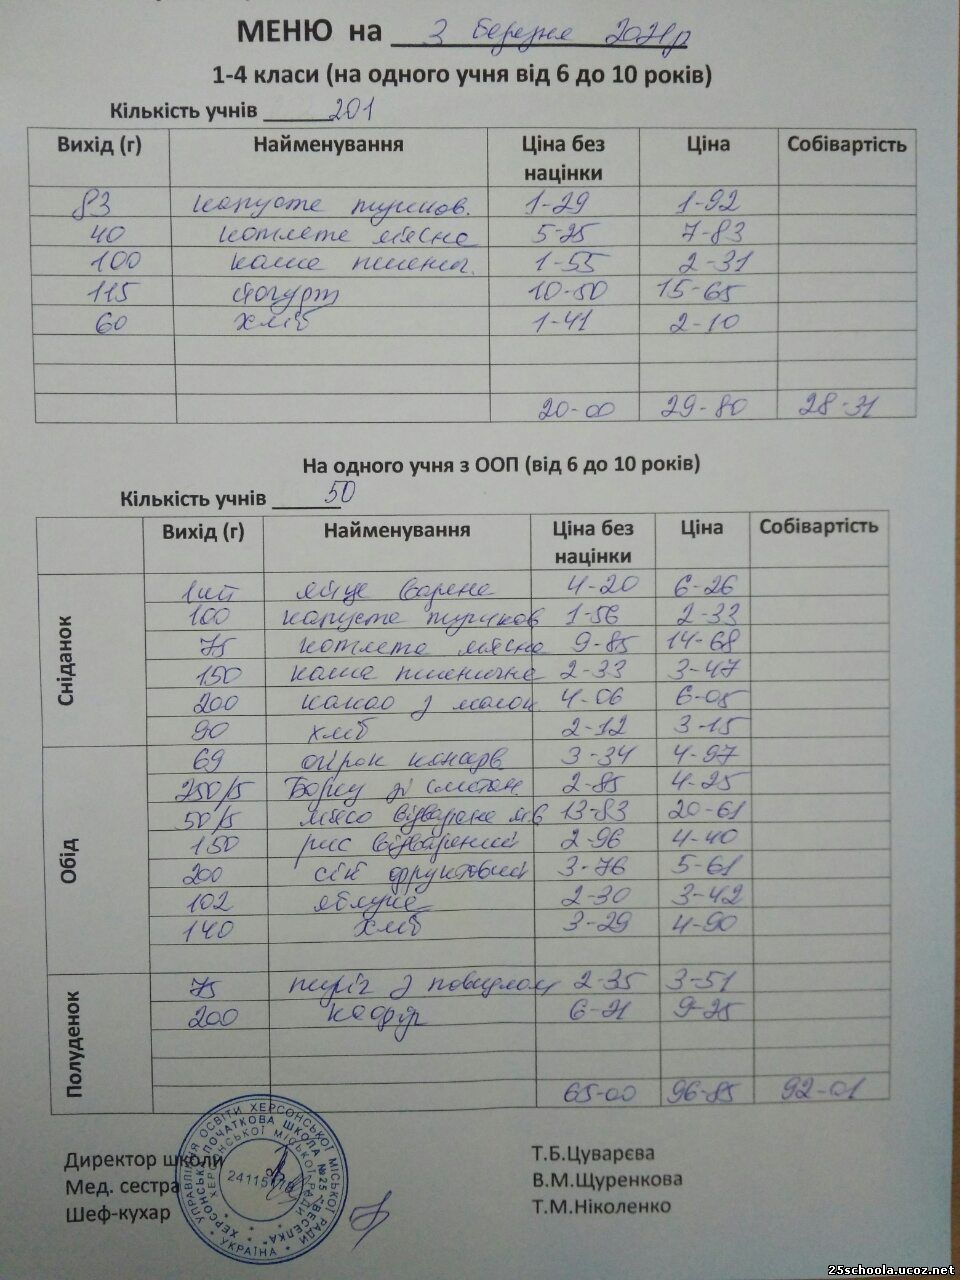 МЕНЮ на 3 березня 2021р
1-4 класи (на одного учня від 6 до 10 років)
Кількість учнів 201
Вихід (г) Найменування Ціна без націнки Ціна Собівартість
83 капуста тушков. 1-29 1-92
40 котлета м'ясна 5-25 7-83
100 каша пшенич. 1-55 2-31
115 йогурт 10-50 15-65
60 хліб 1-41 2-10
20-00 29-80 28-31
На одного учня з ООП (від 6 до 10 років)
Кількість учнів 50
Вихід (г) Найменування Ціна без націнки Ціна Собівартість
Сніданок
1шт яйце варене 4-20 6-26
100 капуста тушков 1-56 2-33
75 котлета м'ясна 9-85 14-68
150 каша пшенична 2-33 3-47
200 какао з молок 4-06 6-05
90 хліб 2-12 3-15
Обід
69 огірок консерв 3-34 4-97
250/5 Борщ зі сметан 2-85 4-25
50/5 м'ясо відварене 13-83 20-61
150 рис відварений 2-96 4-40
200 сік фруктовий 3-76 5-61
102 яблуко 2-30 3-42
140 хліб 3-29 4-90
Полуденок
75 пиріг з повидлом 2-35 3-51
200 кефір 6-21 9-25
65-00 96-85 92-01
Директор школи Т.Б.Цуварєва
Мед. сестра В.М.Щуренкова
Шеф-кухар Т.М.Ніколенко
УПРАВЛІННЯ ОСВІТИ ХЕРСОНСЬКОЇ МІСЬКОЇ РАДИ
ПОЧАТКОВА ШКОЛА №25 "ВЕСЕЛКА"
ХЕРСОНСЬКОЇ МІСЬКОЇ РАДИ
УКРАЇНА
25schoola.ucoz.net